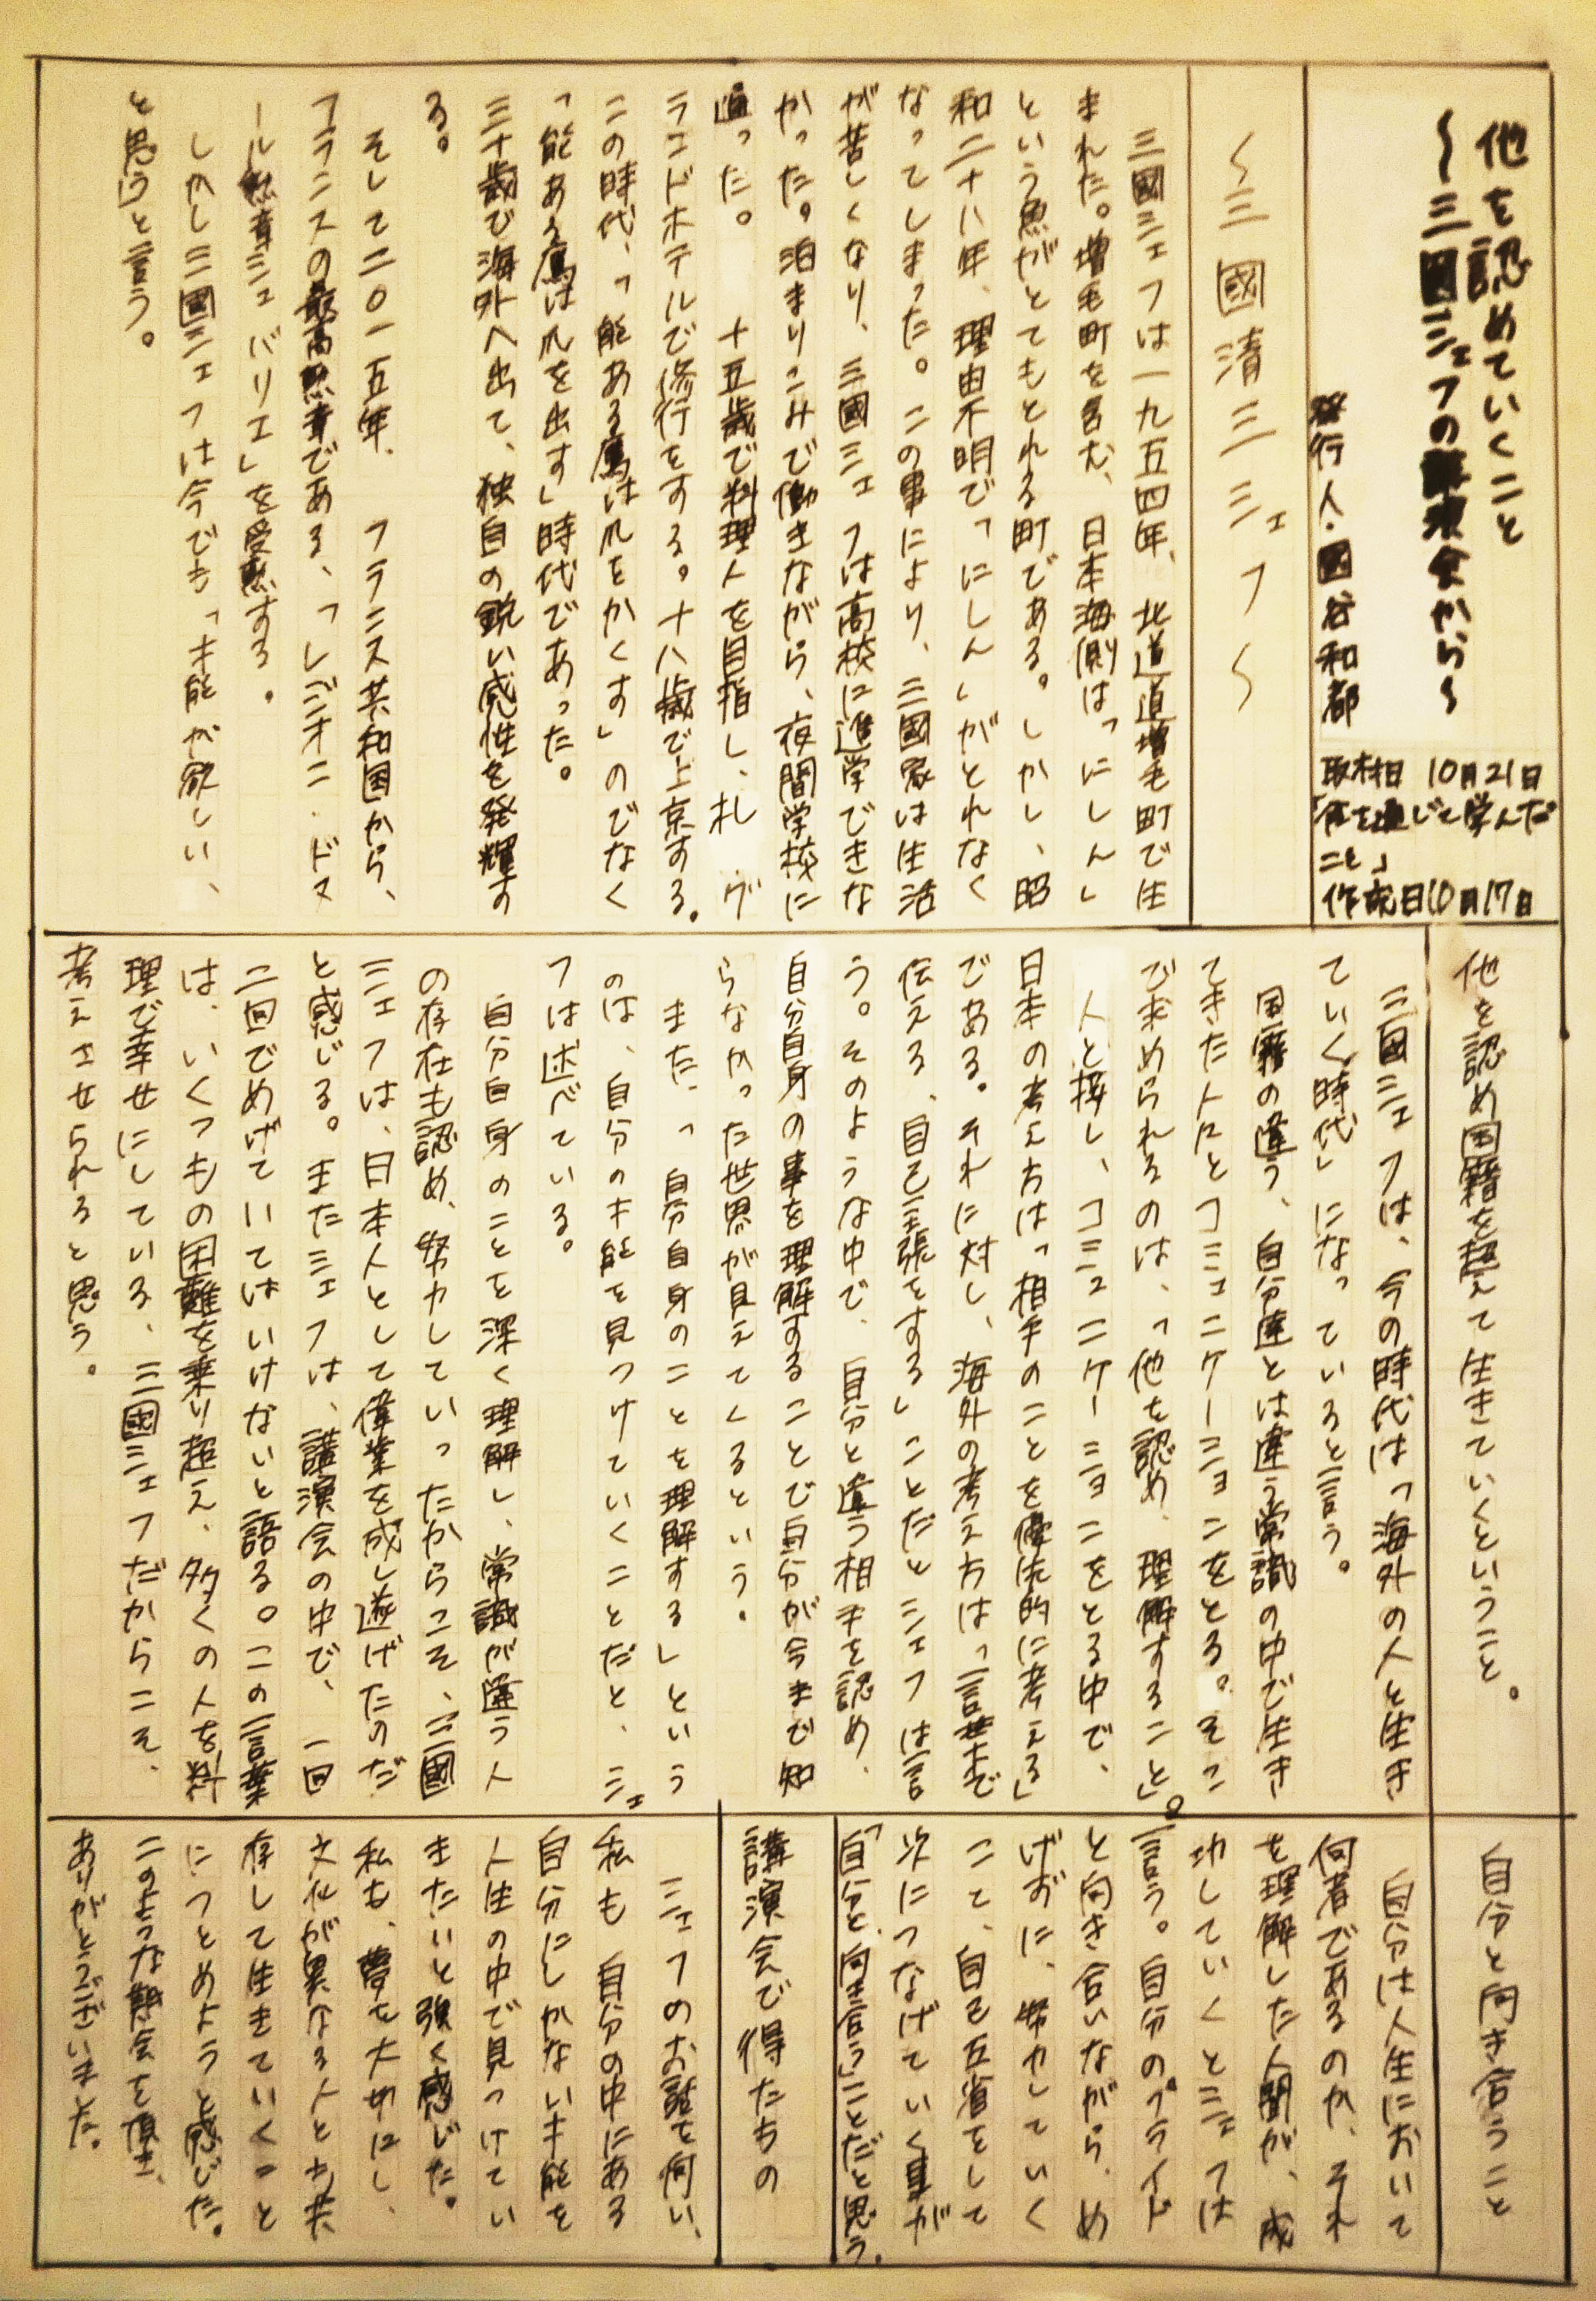 他を認めていくこと
〜三國シェフの講演会から〜
発行人・國谷和都
取材日 10月21日
「食を通じて学んだ
こと」
作成日10月17日
〜三國清三シェフ〜
三國シェフは一九五四年、北道道増毛町で生
まれた。増毛町を含む、日本海側は「にしん」
という魚がとてもとれる町である。しかし、昭
和二十八年、理由不明で「にしん」がとれなく
なってしまった。この事により、三國家は生活
が苦しくなり、三國シェフは高校に進学できな
かった。泊まりこみで働きながら、夜間学校に
通った。 十五歳で料理人を目指し、札 グ
ランドホテルで修行をする。十八歳で上京する。
この時代、「能ある鷹は爪をかくす」のでなく
「能ある鷹は爪を出す」時代であった。
三十歳で海外へ出て、独自の鋭い感性を発輝す
る。
そして二〇一五年、フランス共和国から、
フランスの最高勲章である、「レジオン・ドヌ
ール勲章シュバリエ」を受勲する。
しかし三國シェフは今でも「才能が欲しい、
と思う」と言う。
他を認め国籍を超えて生きていくということ。
三國シェフは、今の時代は「海外の人と生き
ていく時代」になっていると言う。
国籍の違う、自分達とは違う常識の中で生き
てきた人とコミュニケーションをとる。そこ
で求められるのは、「他を認め、理解すること」。
人と接し、コミュニケーションをとる中で、
日本の考え方は「相手のことを優先的に考える」
である。それに対し、海外の考え方は「言葉で
伝える、自己主張をする」ことだとシェフは言
う。そのような中で、自分と違う相手を認め、
自分自身の事を理解することで自分が今まで知
らなかった世界が見えてくるという。
また、「自分自身のことを理解する」という
のは、自分の才能を見つけていくことだと、シェ
フは述べている。
自分自身のことを深く理解し、常識が違う人
の存在も認め、努力していったからこそ、三國
シェフは、日本人として偉業を成し遂げたのだ
と感じる。またシェフは、講演会の中で、一回
二回でめげていてはいけないと語る。この言葉
は、いくつもの困難を乗り超え、多くの人を料
理で幸せにしている、三國シェフだからこそ、
考えさせられると思う。
自分と向き合うこと
自分は人生において
何者であるのか、それ
を理解した人間が、成
功していくとシェフは
言う。自分のプライド
と向き合いながら、め
げずに、努力していく
こと、自己反省をして
次につなげていく事が
「自分と向き合う」ことだと思う。
講演会で得たもの
シェフのお話を伺い、
私も自分の中にある
自分にしかない才能を
人生の中で見つけてい
きたいと強く感じた。
私も、夢を大切にし、
文化が異なる人とも共
存して生きていくこと
につとめようと感じた。
このような機会を頂き、
ありがとうございました。